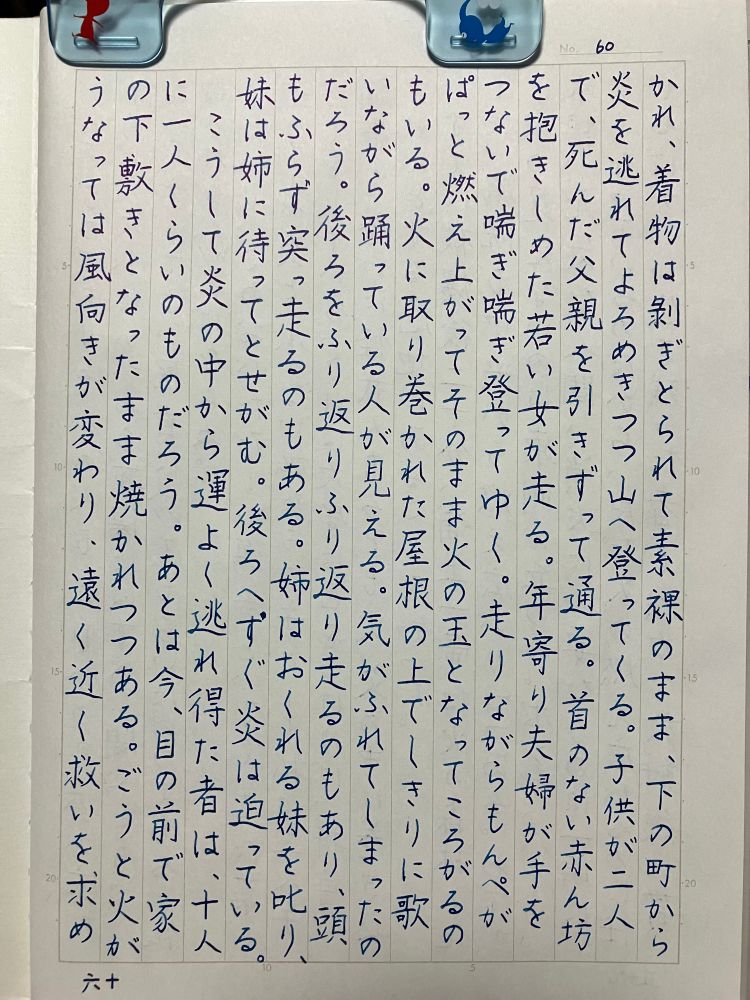 No. 60
かれ、着物は剝ぎとられて素裸のまま、下の町から
炎を逃れてよろめきつつ山へ登ってくる。子供が二人
で、死んだ父親を引きずって通る。首のない赤ん坊
を抱きしめた若い女が走る。年寄り夫婦が手を
つないで喘ぎ喘ぎ登ってゆく。走りながらもんぺが
ぱっと燃え上がってそのまま火の玉となってころがるの
もいる。火に取り巻かれた屋根の上でしきりに歌
いながら踊っている人が見える。気がふれてしまったの
だろう。後ろをふり返りふり返り走るのもあり、頭
もふらず突っ走るのもある。姉はおくれる妹を叱り、
妹は姉に待ってとせがむ。後ろへすぐ炎は迫っている。
こうして炎の中から運よく逃れ得た者は、十人
に一人くらいのものだろう。あとは今、目の前で家
の下敷きとなったまま焼かれつつある。ごうと火が
うなっては風向きが変わり、遠く近く救いを求め
5
10
15
20
5
10
15
20
10
5
六十